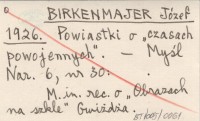 BIRKENMAJER Józef
1926. Powiastki o „czasach
powojennych". — Myśl
Nar. 6, nr 30.
M. in. rec. o „Obrazach
na szkle" Gwiżdża.